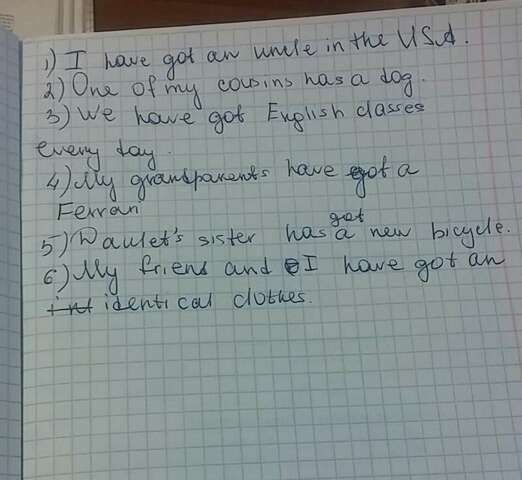 1) I have got an uncle in the USA.
2) One of my cousins has a dog.
3) We have got English classes
every day.
4) My grandparents have got a
Ferrari
5) Daulet's sister has got a new bicycle.
6) My friend and I have got an
int identical clothes.